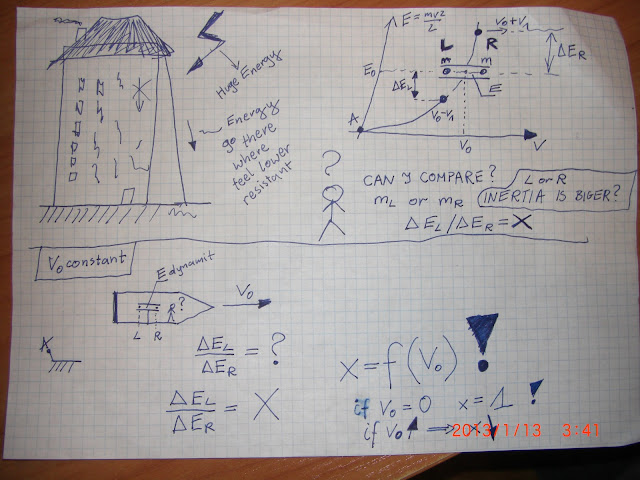 Huge Energy
Energy
go there
where
feel lower
resistant
E = mv2/2
V0+V1
L R
m m
E0
ΔEL
ΔER
E
V0-V1
A
V0
V
?
CAN I COMPARE?
mL or mR
L or R
INERTIA IS BIGER?
ΔEL/ΔER = X
V0 constant
E dynamit
V0
?
L R
A
ΔEL/ΔER = ?
ΔEL/ΔER = X
x = f(V0) !
if V0 = 0 x = 1 !
if V0↑ ⇒ x↓
2013/1/13 3:41